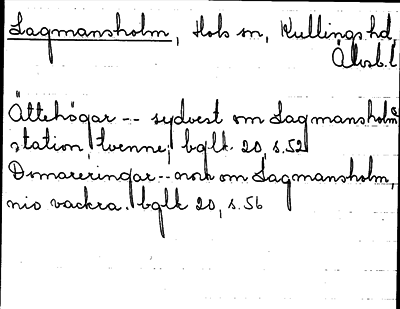 Lagmansholm, Hols sn, Kullings hd,
Älvsb. l
Ättehögar -- sydvest om Lagmansholms
station tvenne; bglk. 20, s. 52
Domareringar -- norr om Lagmansholm,
nio vackra. bglk 20, s. 56